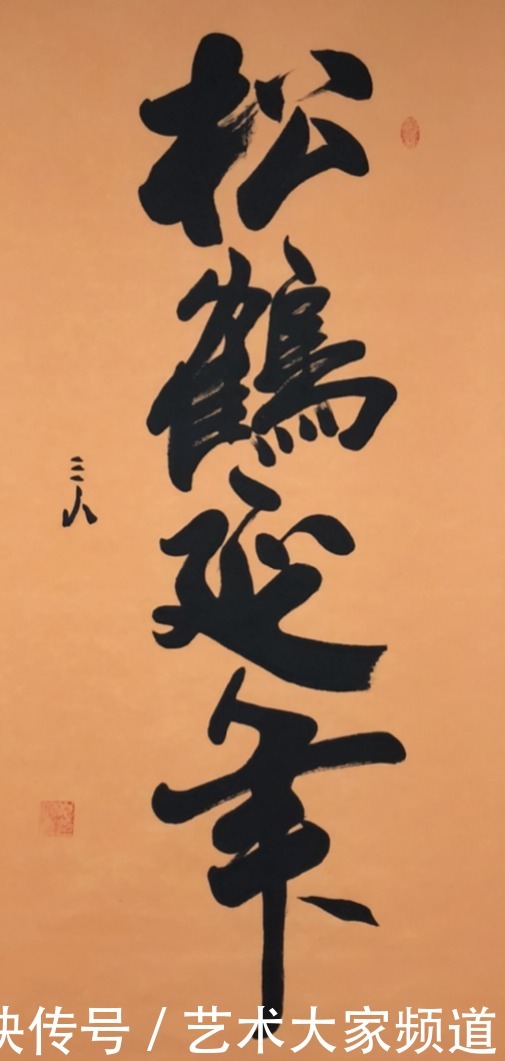 松鹤延年
三人
快传号 / 艺术大家频道